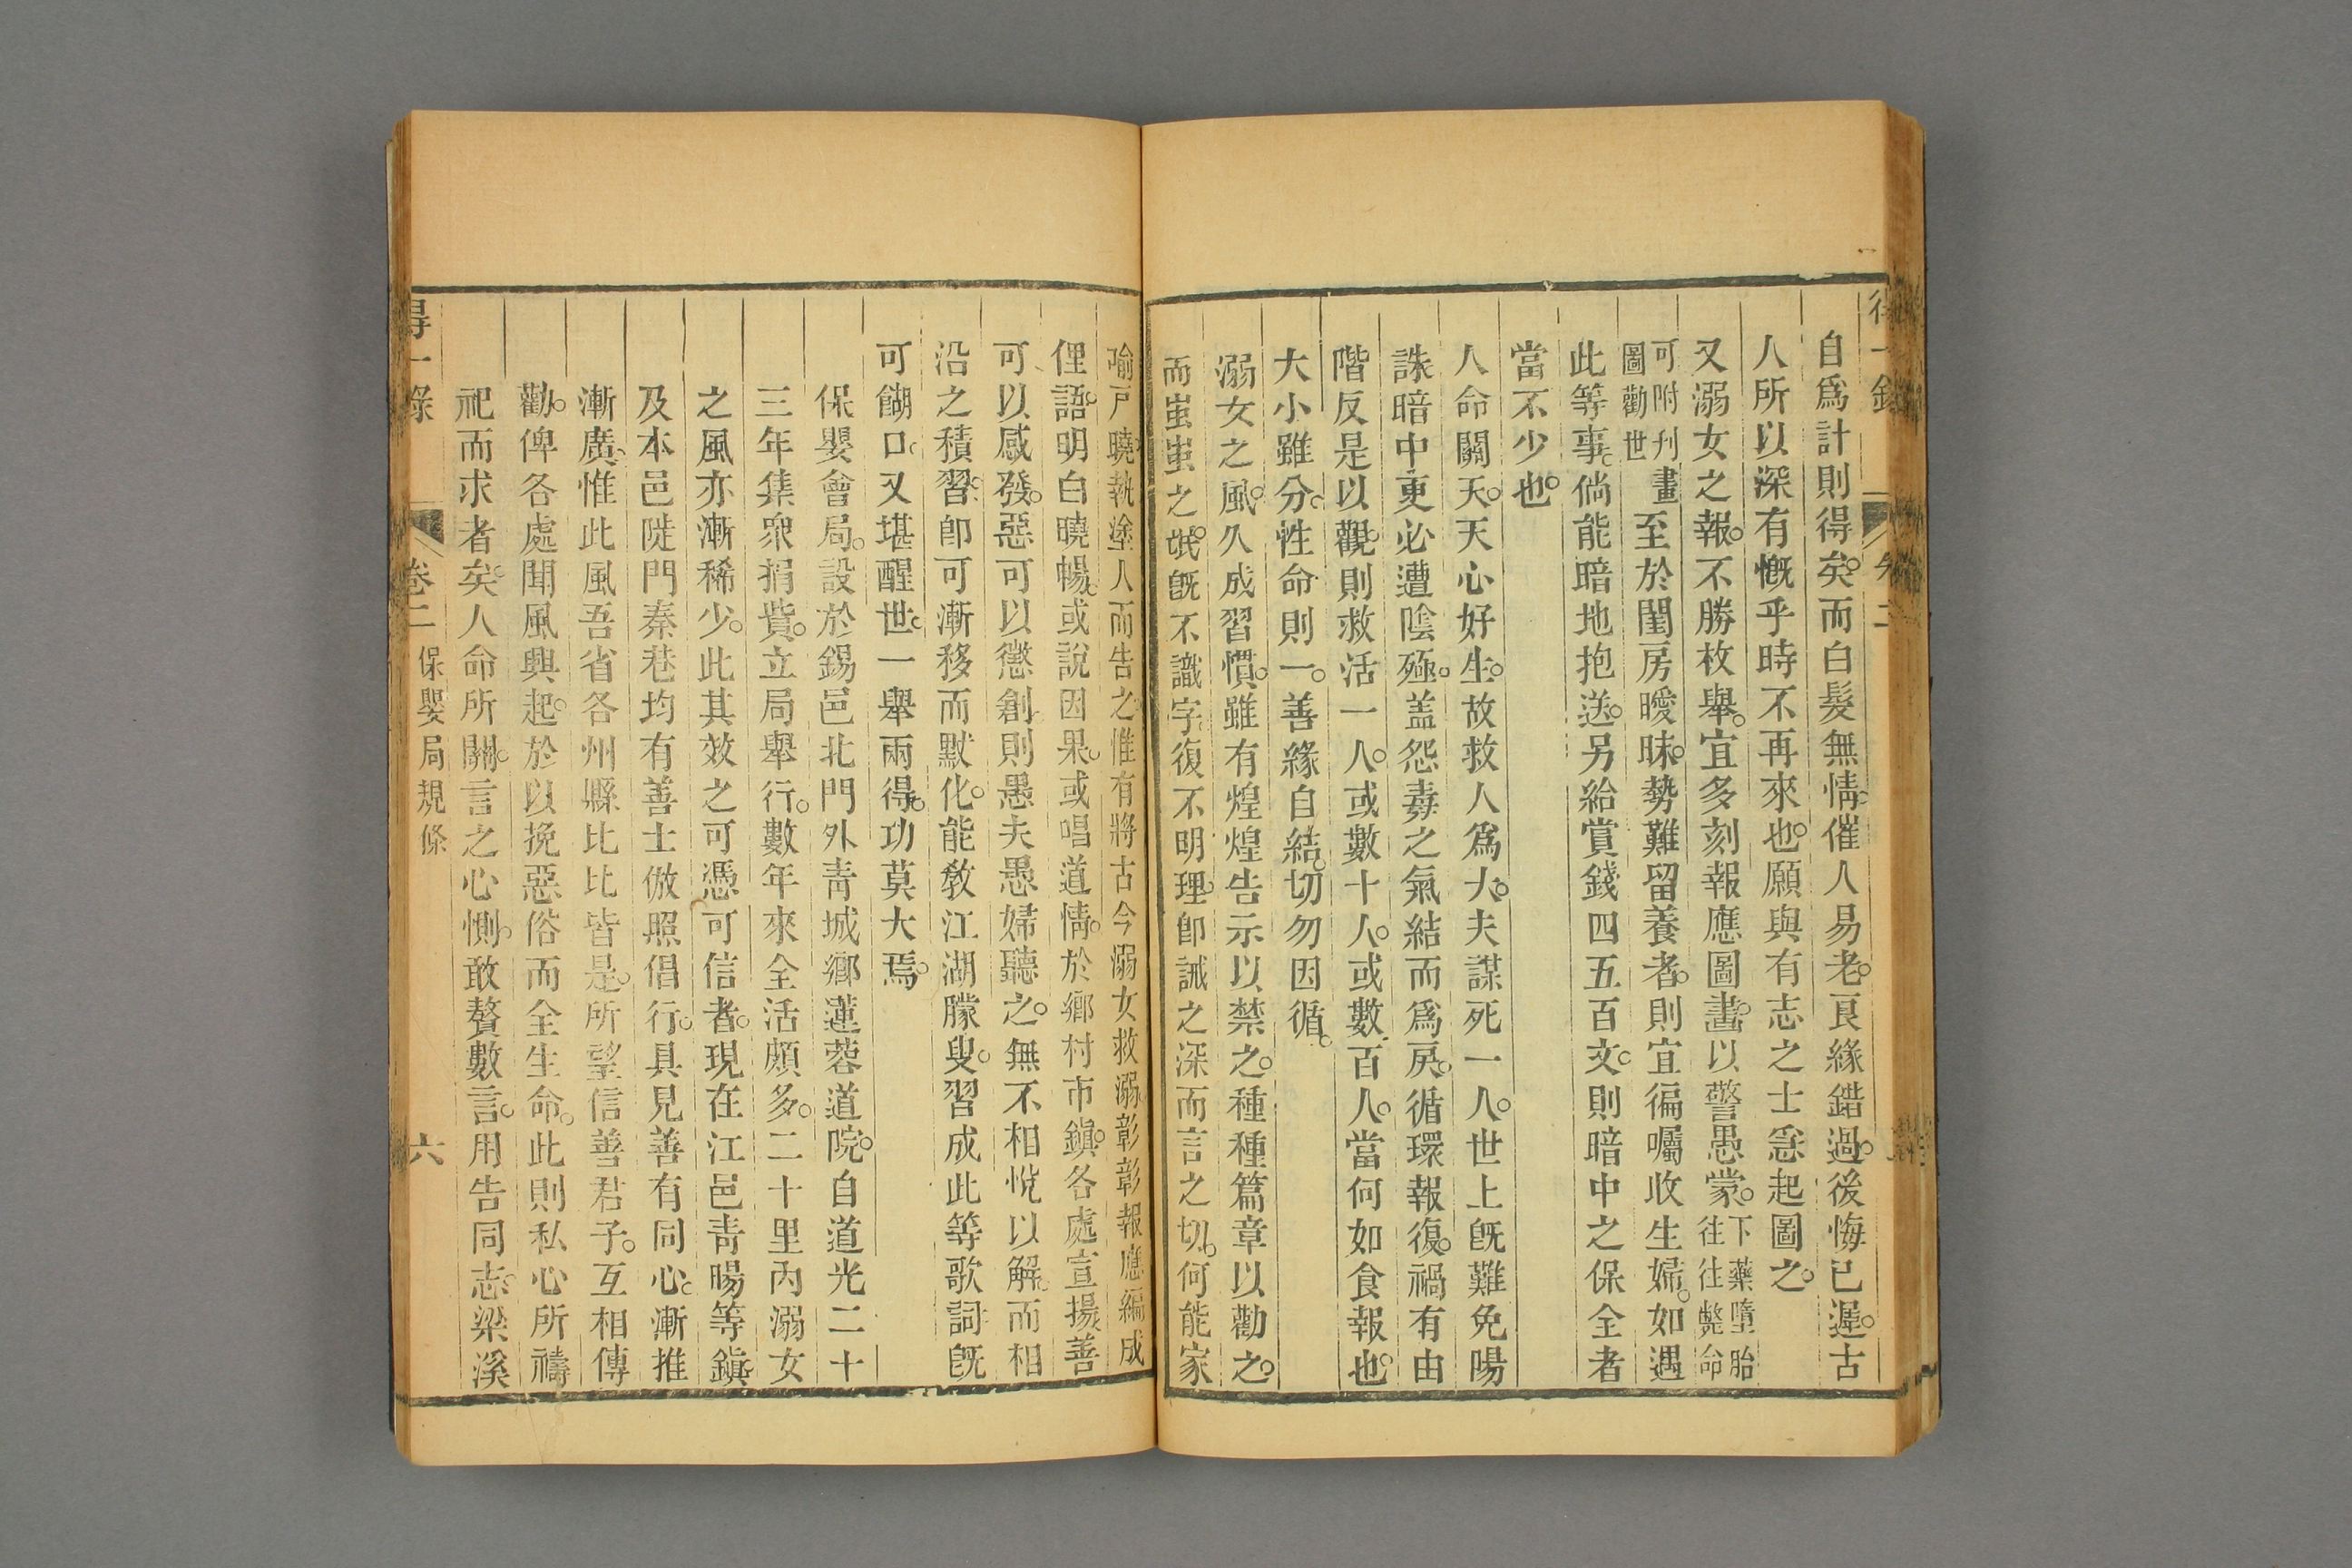 得一錄
卷二
自爲計則得矣。而白髮無情。催人易老。良緣錯過。後悔已遲。古
人所以深有慨乎時不再來也。願與有志之士急起圖之。
又溺女之報。不勝枚舉。宜多刻報應圖畫。以警愚蒙。下藥墮胎往往斃命
可附刋圖勸世畫至於閨房曖昧。勢難留養者。則宜徧囑收生婦。如遇
此等事。倘能暗地抱送。另給賞錢四五百文。則暗中之保全者
當不少也。
人命關天。天心好生。故救人爲大。夫謀死一人。世上旣難免陽
誅暗中更必遭陰殛。盖怨毒之氣結而爲戾。循環報復。禍有由
階反是以觀。則救活一人。或數十人。或數百人。當何如食報也。
大小雖分。性命則一。善緣自結。切勿因循。
溺女之風。久成習慣。雖有煌煌告示以禁之。種種篇章以勸之。
而蚩蚩之氓。旣不識字。復不明理。卽誡之深而言之切。何能家
喻戸曉執塗人而告之。惟有將古今溺女救溺。彰彰報應編成
俚語。明白曉暢。或說因果。或唱道情。於鄉村市鎭。各處宣揚。善
可以感發。惡可以懲創。則愚夫愚婦聽之。無不相悅以解。而相
沿之積習。卽可漸移而默化。能敎江湖矇叟。習成此等歌詞。旣
可餬口。又堪醒世。一舉兩得。功莫大焉。
保嬰會局。設於錫邑北門外靑城鄉蓮蓉道院。自道光二十
三年集衆捐貲。立局舉行。數年來全活頗多。二十里內溺女
之風亦漸稀少。此其效之可憑可信者。現在江邑靑暘等鎭
及本邑陡門秦巷均有善士倣照倡行。具見善有同心。漸推
漸廣。惟此風吾省各州縣比比皆是。所望信善君子。互相傳
勸。俾各處聞風興起。於以挽惡俗而全生命。此則私心所禱
祀而求者矣。人命所關。言之心惻。敢贅數言。用告同志。梁溪
得一錄
卷二
保嬰局規條
六